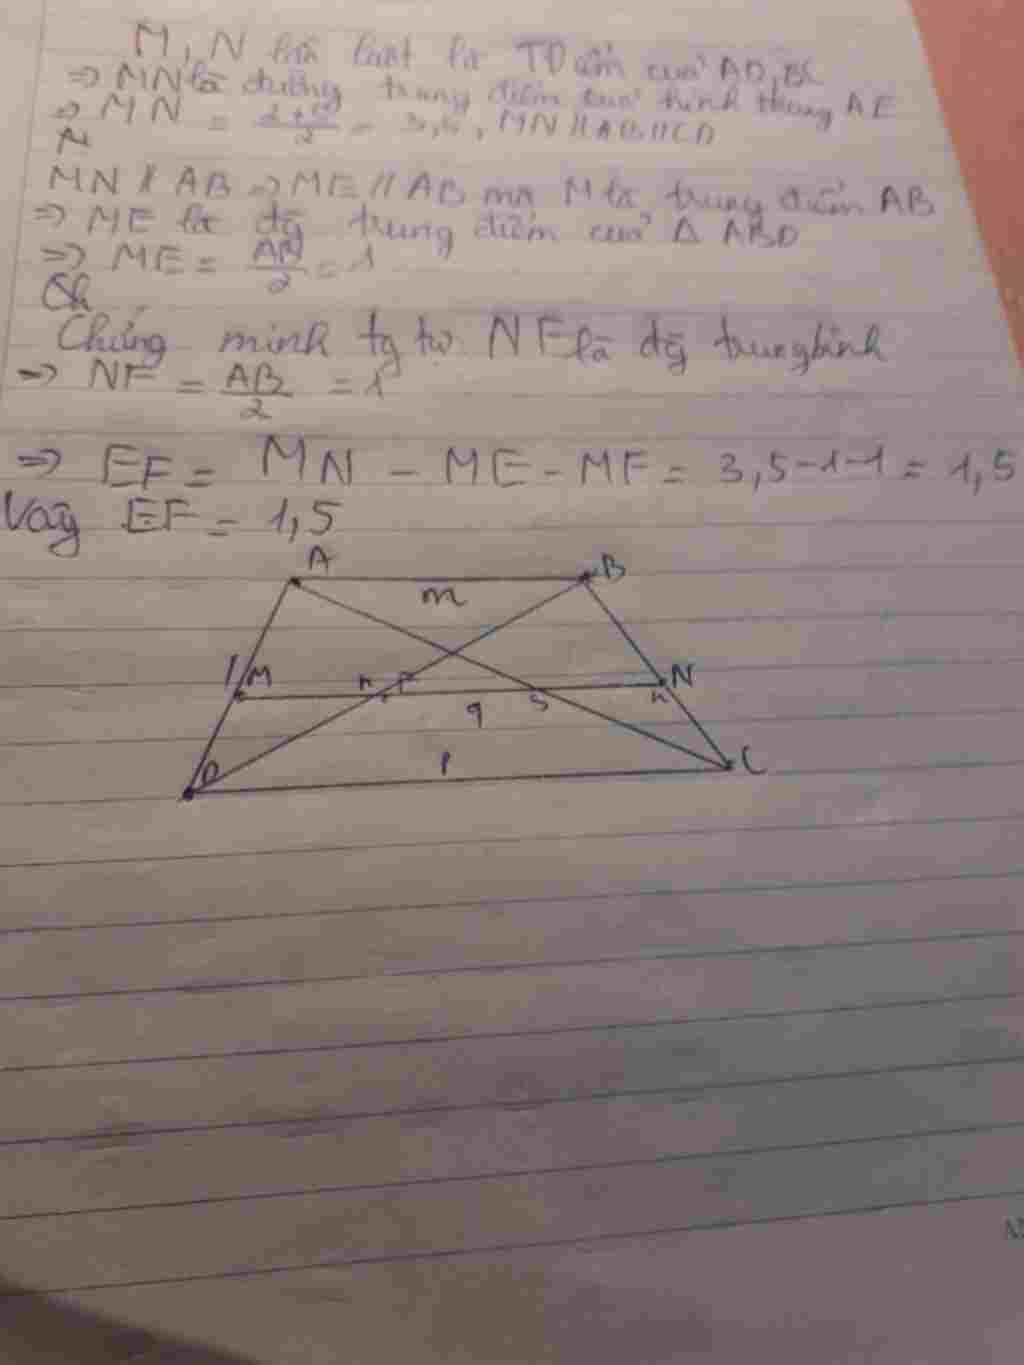 M, N lần lượt là TĐ của AD, BC
=> MN là đường trung điểm của hình thang
=> MN = 2+5/2 = 3,5, MN // AB // CD
MN // AB => ME // AB mà M là trung điểm AB
=> ME là đg trung điểm của Δ ABD
=> ME = AB/2 = 1
Chứng minh tg tự NF là đg trung bình
=> NF = AB/2 = 1
=> EF = MN - ME - MF = 3,5-1-1 = 1,5
Vậy EF = 1,5
A B
m
M N
q s
D C